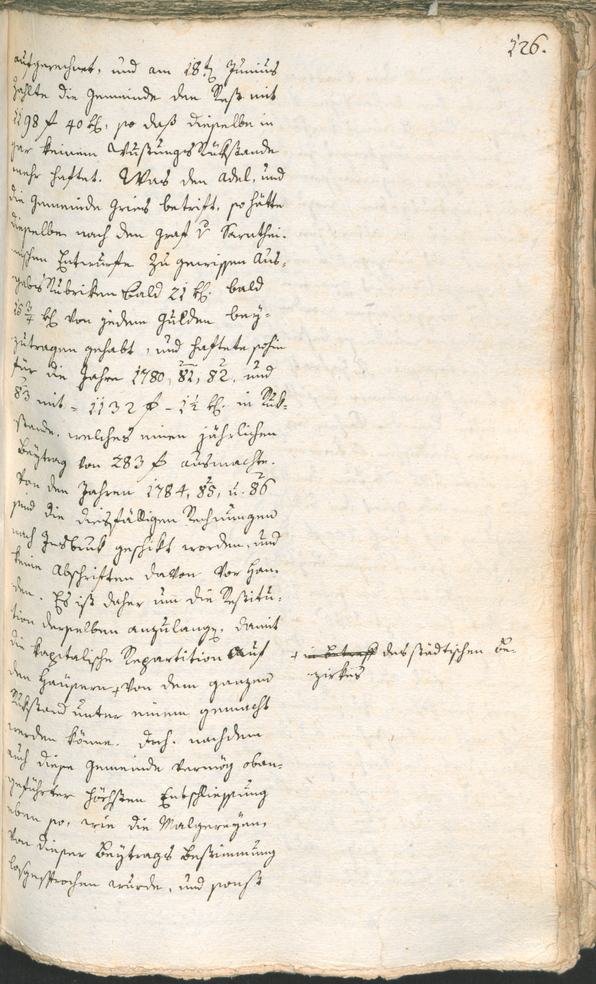 126.
aufgerechnet, und am 18t. Junius
zahlte die Gemeinde den Rest mit
1198 f 40 kr, so daß dieselbe in
gar keinem Wustungs Rükstande
mehr haftet. Was den Adel, und
die Gemeinde Gries betrift, so hätte
dieselbe nach den Graf v Sarnthei-
nischen Entwurfe zu gewissen Aus-
gabs Rubriken bald 21 kr. bald
15 3/4 kr von jedem Gulden bey-
zutragen gehabt, und haftete sohin
für die Jahre 1780, 81, 82, und
83 mit = 1132 f - 1 1/2 kr. in Rük-
stande, welches einen jährlichen
Beytrag von 283 f ausmachte.
Von den Jahren 1784, 85, u. 86
sind die diesfälligen Rechnungen
nach Insbruk geschikt worden, und
keine Abschriften davon vor Han-
den. Es ist daher um die Restitu-
tion derselben anzulangen, damit
die kapitalische Repartition auf
den Häusern + von dem ganzen
Rükstand unter einem gemacht
werden könne. Doch nachdem
auch diese Gemeinde vermög oban-
geführter höchsten Entschliessung
eben so, wie die Malgereyen,
von dieser Beytrags Bestimmung
losgesprochen wurde, und sonst
+ in betreff des städtischen Be-
zirkes